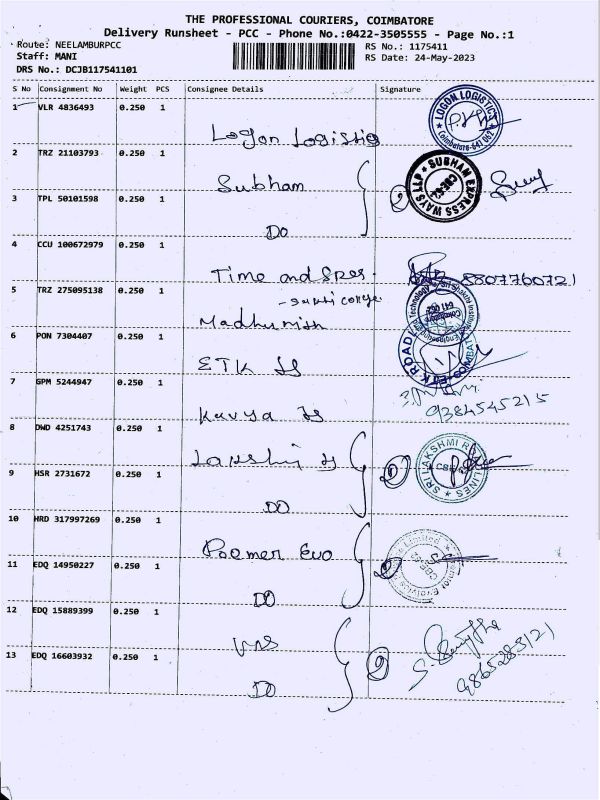 THE PROFESSIONAL COURIERS, COIMBATORE
Delivery Runsheet - PCC - Phone No.:0422-3505555 - Page No.:1
Route: NEELAMBURPCC
Staff: MANI
DRS No.: DCJB117541101
RS No.: 1175411
RS Date: 24-May-2023
S No Consignment No Weight PCS Consignee Details Signature
1 VLR 4836493 0.250 1
Logon Logistics
LOGON LOGISTICS
Coimbatore-641 062
2 TRZ 21103793 0.250 1
Subham
2
SUBHAM EXPRESS WAYS LLP
CBE-62
3 TPL 50101598 0.250 1
DO
4 CCU 100672979 0.250 1
Time and
8807760721
5 TRZ 275095138 0.250 1
Coimbatore
641 062
6 PON 7304407 0.250 1
ETK
7 GPM 5244947 0.250 1
Kavya
9384545215
8 DWD 4251743 0.250 1
2
SRI LAKSHMI
CBE
9 HSR 2731672 0.250 1
DO
10 HRD 317997269 0.250 1
Poemer Evo
2
11 EDQ 14950227 0.250 1
DO
12 EDQ 15889399 0.250 1
2
13 EDQ 16603932 0.250 1
DO